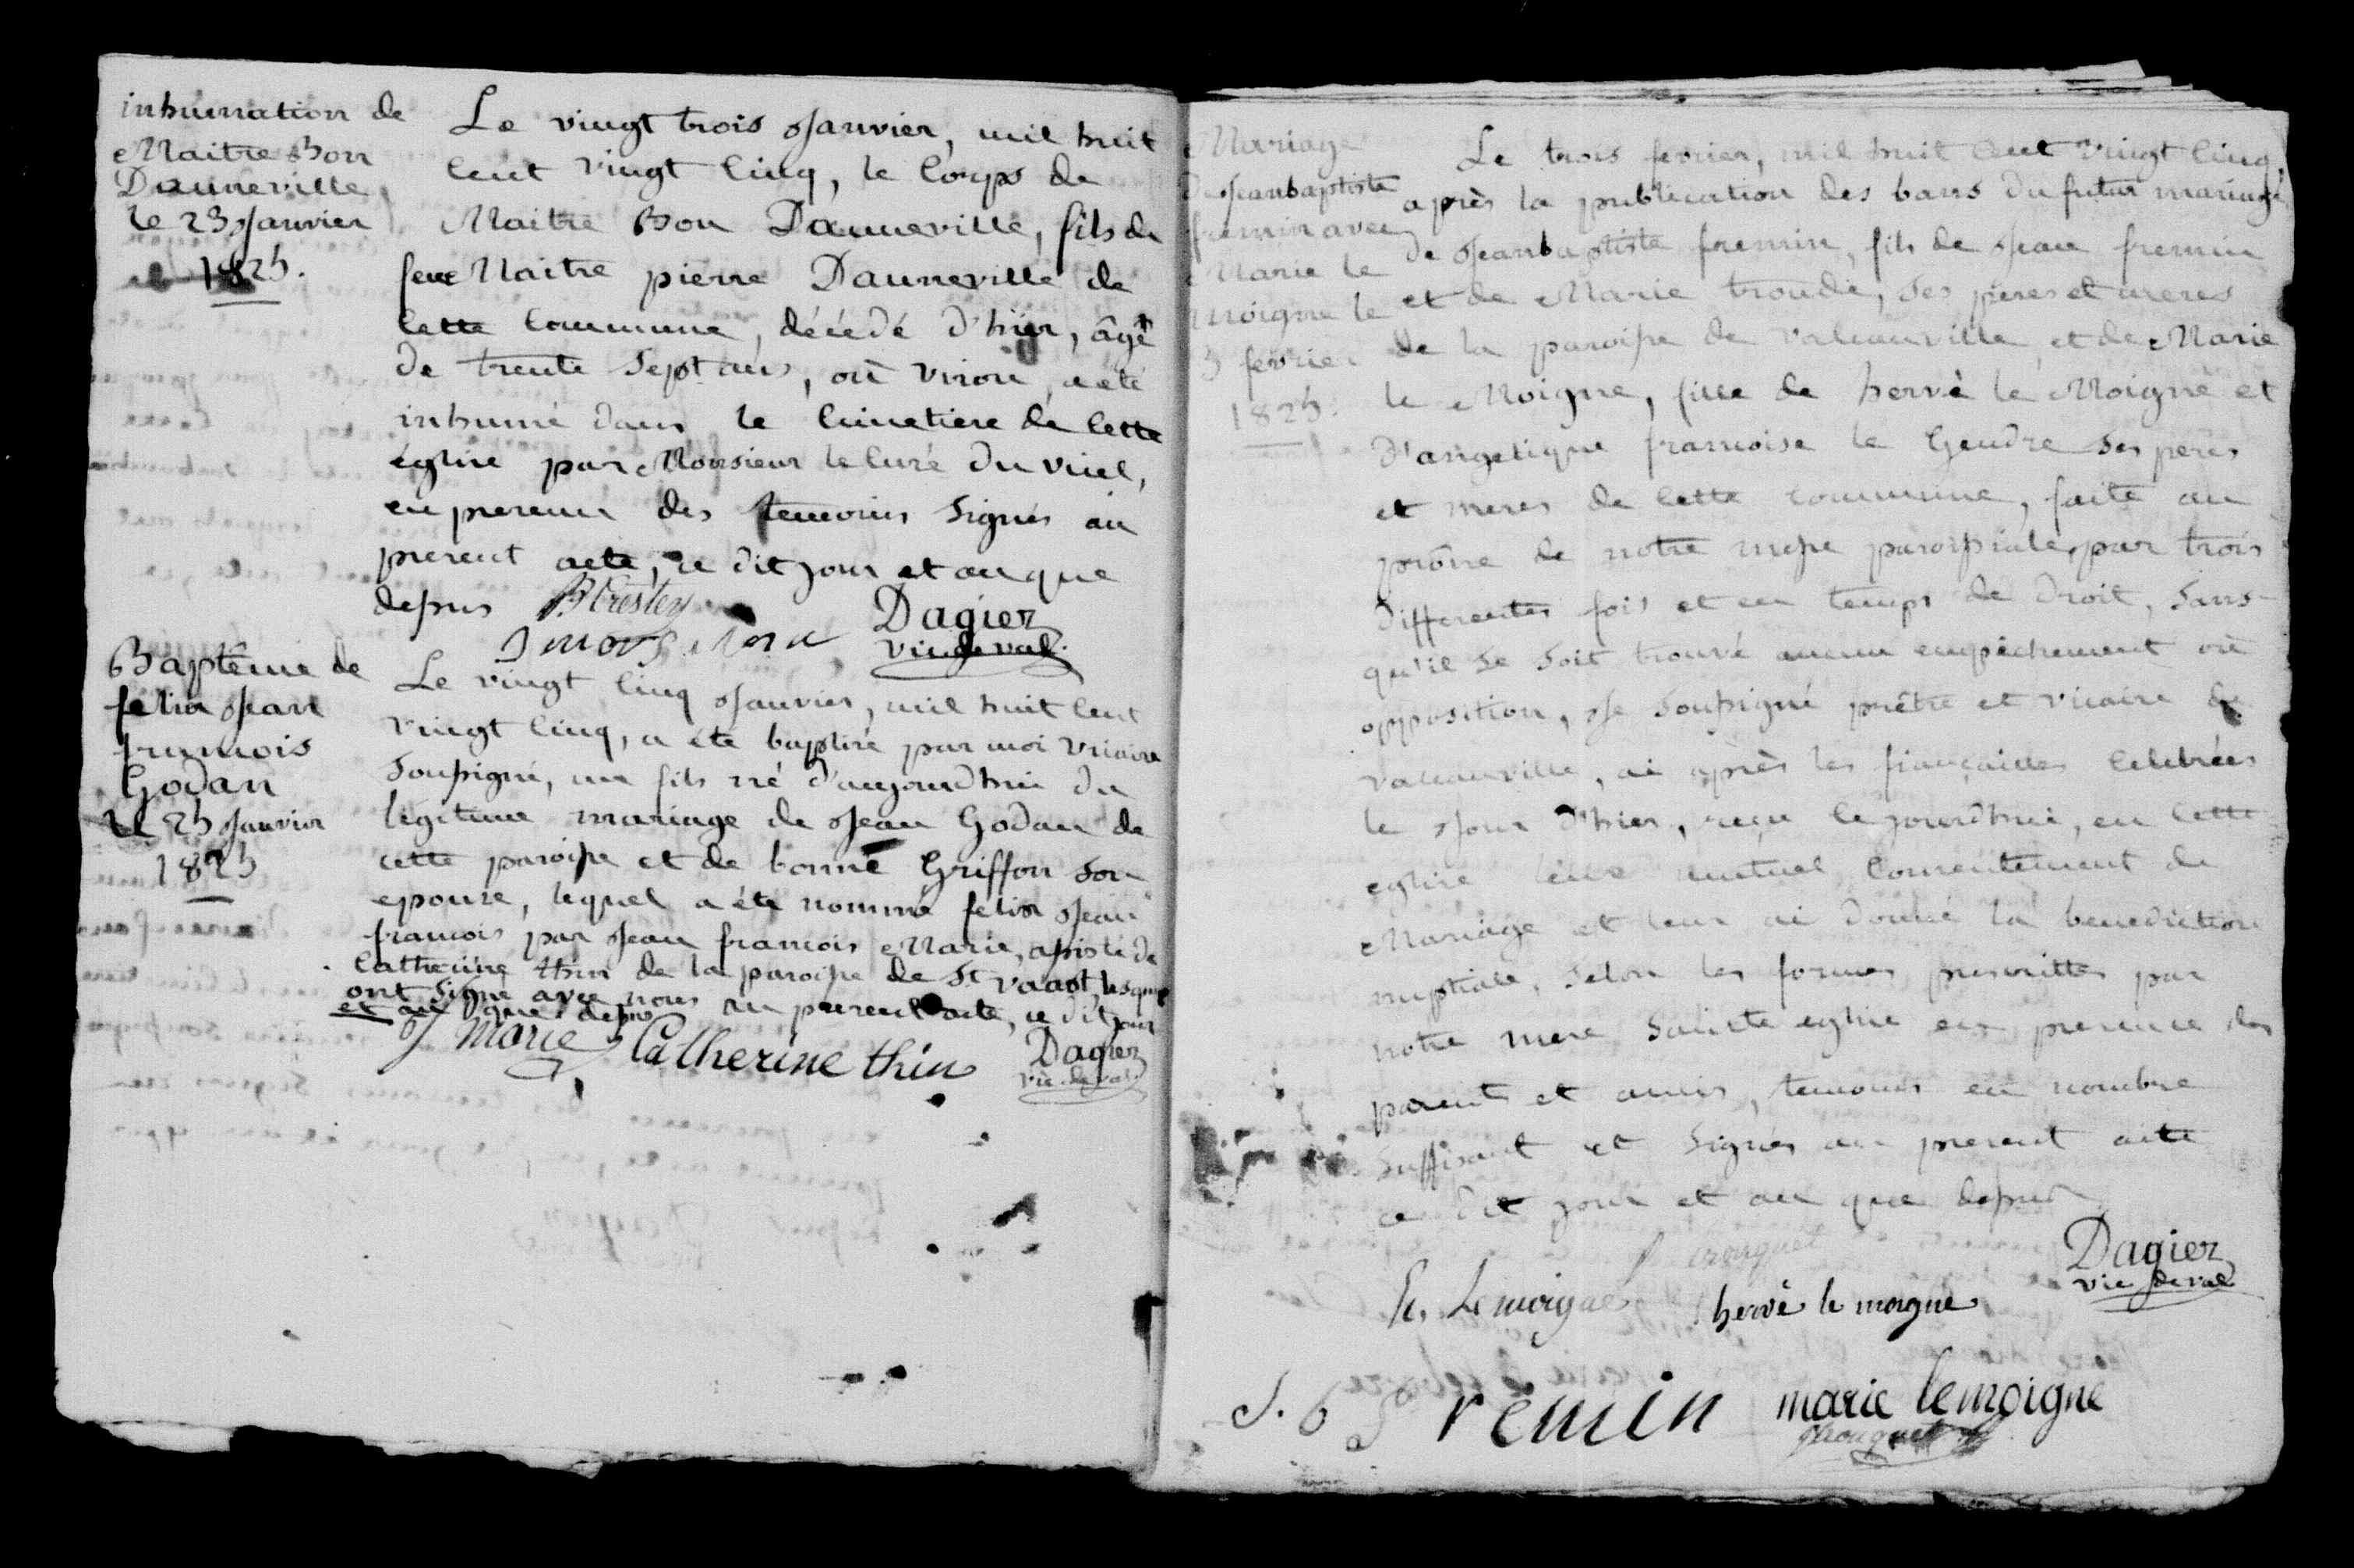 inhumation de
Maitre Bon
Dauneville
le 23 Janvier
1825.
Le vingt trois Janvier, mil huit
Cent vingt Cinq, le Corps de
Maitre Bon Dauneville, fils de
feue Maitre pierre Dauneville de
Cette Commune, décédé d'hier, âgé
de trente Sept ans, où viron, a été
inhumé dans le Cimetiere de Cette
églire par Monsieur le Curé du vicel,
en prerence des temoins Signés au
prerent acte, ce dit jour et an que
depus
Dagier
vic. de val.
Baptême de
felix Jean
francois
Godan
le 25 Janvier
1825
Le vingt Cinq Janvier, mil huit Cent
vingt Cinq, a été baptiré par moi vicaire
Soupigné, un fils né d'aujourdhui du
légitime mariage de Jean Godan de
cette paroipe et de bonne Griffon Son
epoure, lequel a été nommé felix Jean
francois par Jean francois Marie, apisté de
Catherine thin de la paroipe de St vaast, lesquels
ont Signé avec nous au prerent acte, ce dit jour
et an que depus
J Marie Catherine thin Dagier
vic. de val.
Mariage
de Jeanbaptiste
fremin avec
Marie le
moigne le
3 fevrier
1825.
Le trois fevrier, mil huit Cent vingt Cinq,
après la publication des bans du futur mariage
de Jeanbaptiste fremin, fils de Jean fremin
et de Marie troude, Ses peres et meres
de la paroipe de valcanville, et de Marie
le Moigne, fille de hervé le Moigne et
d'angelique francoise le Gendre Ses peres
et meres de Cette Commune, faite au
prône de notre mepe paroipiale, par trois
differentes fois et en temps de droit, Sans
qu'il Se Soit trouvé aucun empêchement où
opposition, Je Soupigné prêtre et vicaire de
valcanville, ai après les fiancailles Celebrées
le Jour d'hier, recu Cejourdhui, en Cette
eglire leur mutuel Conrentement de
Mariage et leur ai donné la benediction
nuptiale, Selon les formes prescrittes par
notre mere Sainte eglire en prerence des
parents et amis, temoins en nombre
Suffisant et Signés au prerent acte
ce dit jour et an que depus
Dagier
vic de val
h. Lemoigne hervé le moigne
J. b fremin marie lemoigne